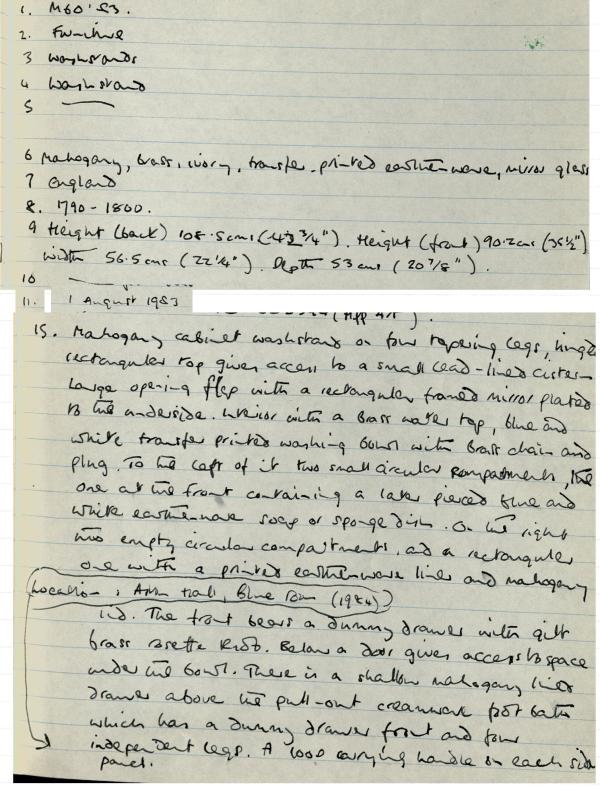 1. M60'83.
2. Furniture
3 washstands
4 washstand
5 —
6 mahogany, brass, ivory, transfer-printed earthenware, mirror glass
7 England
8. 1790-1800.
9 Height (back) 108.5cms (42 3/4"). Height (front) 90.2cms (35½")
width 56.5cms (22¼"). Depth 53cms (20 7/8").
10 —
11. 1 August 1983
(App A/1).
15. Mahogany cabinet washstand on four tapering legs, hinged
rectangular top gives access to a small lead-lined cistern
Large opening flap with a rectangular framed mirror plated
to the underside. Interior with a brass water tap, blue and
white transfer printed washing bowl with brass chain and
plug. To the left of it two small circular compartments, the
one at the front containing a later pierced blue and
white earthenware soap or sponge dish. On the right
two empty circular compartments, and a rectangular
one with a printed earthenware liner and mahogany
Location: Hall, Blue Room (1984)
lid. The front bears a dummy drawer with gilt
brass rosette knob. Below a door gives access to space
under the bowl. There is a shallow mahogany lined
drawer above the pull-out creamware foot bath
which has a dummy drawer front and four
independent legs. A carrying handle on each side
panel.